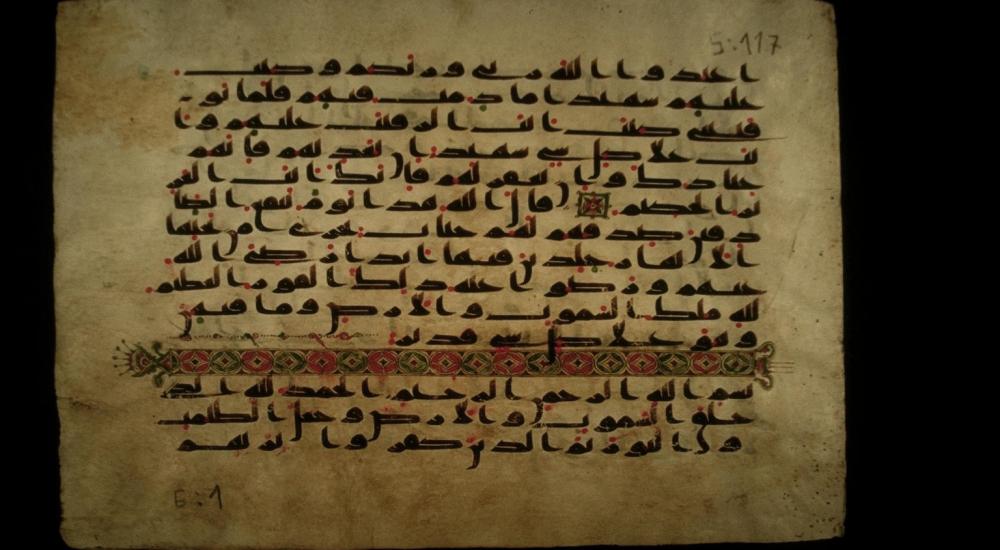 5:117
اعبدوا الله ربي وربكم وكنت
عليهم شهيدا ما دمت فيهم فلما تو
فيتني كنت انت الرقيب عليهم وا
نت على كل شي شهيد ان تعذبهم فانهم
عبادك وان تغفر لهم فانك انت العز
يز الحكيم قال الله هذا يوم ينفع الصا
دقين صدقهم لهم جنات تجري من تحتها
الانهار خلدين فيها ابدا رضي الله
عنهم ورضوا عنه ذلك الفوز العظيم
لله ملك السموت والارض وما فيهن
وهو على كل شي قدير
بسم الله الرحمن الرحيم الحمد لله الذي
خلق السموت والارض وجعل الظلمت
والنور ثم الذين كفروا بربهم
6:1